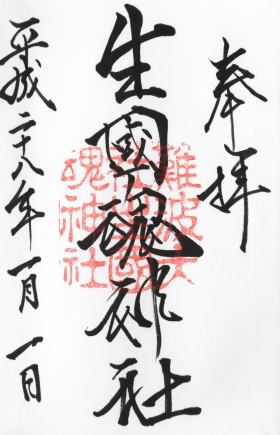 奉拝
生國魂神社
難波大社
生國魂神社
平成二十八年一月一日